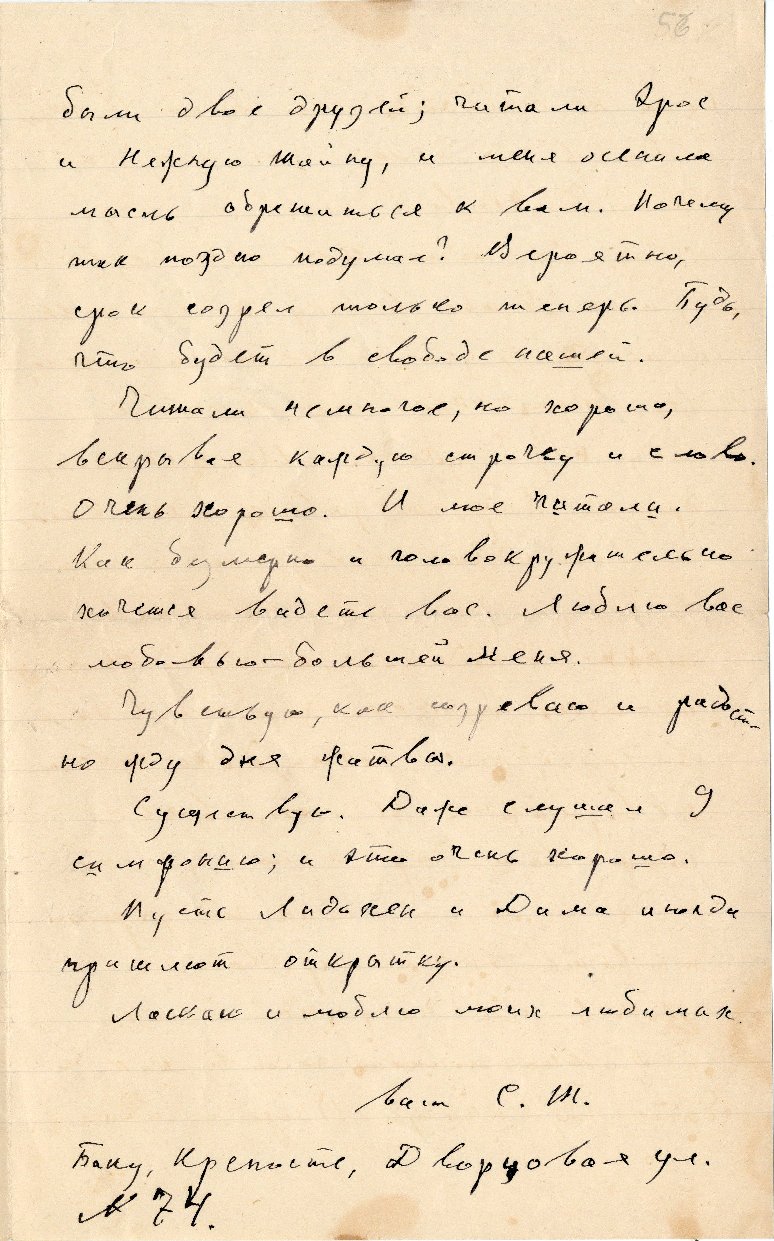 56
были двое друзей; читали Эрос
и Нежную Тайну, и меня осенила
мысль обратиться к вам. Почему
так поздно подумал? Вероятно,
срок созрел только теперь. Будь,
что будет в свободе нашей.
Читали немногое, но хорошо,
вскрывая каждую строчку и слово.
Очень хорошо. И мое читали.
Как безмерно и головокружительно
хочется видеть вас. Люблю вас
любовью – большей меня.
Чувствую, как созреваю и радост-
но жду дня жатвы.
Существую. Даже слушал 9
симфонию; и это очень хорошо.
Пусть Лидохен и Дима иногда
пришлют открытку.
Ласкаю и люблю моих любимых
ваш С. Т.
Баку, Крепость, Дворцовая ул.
№ 74.